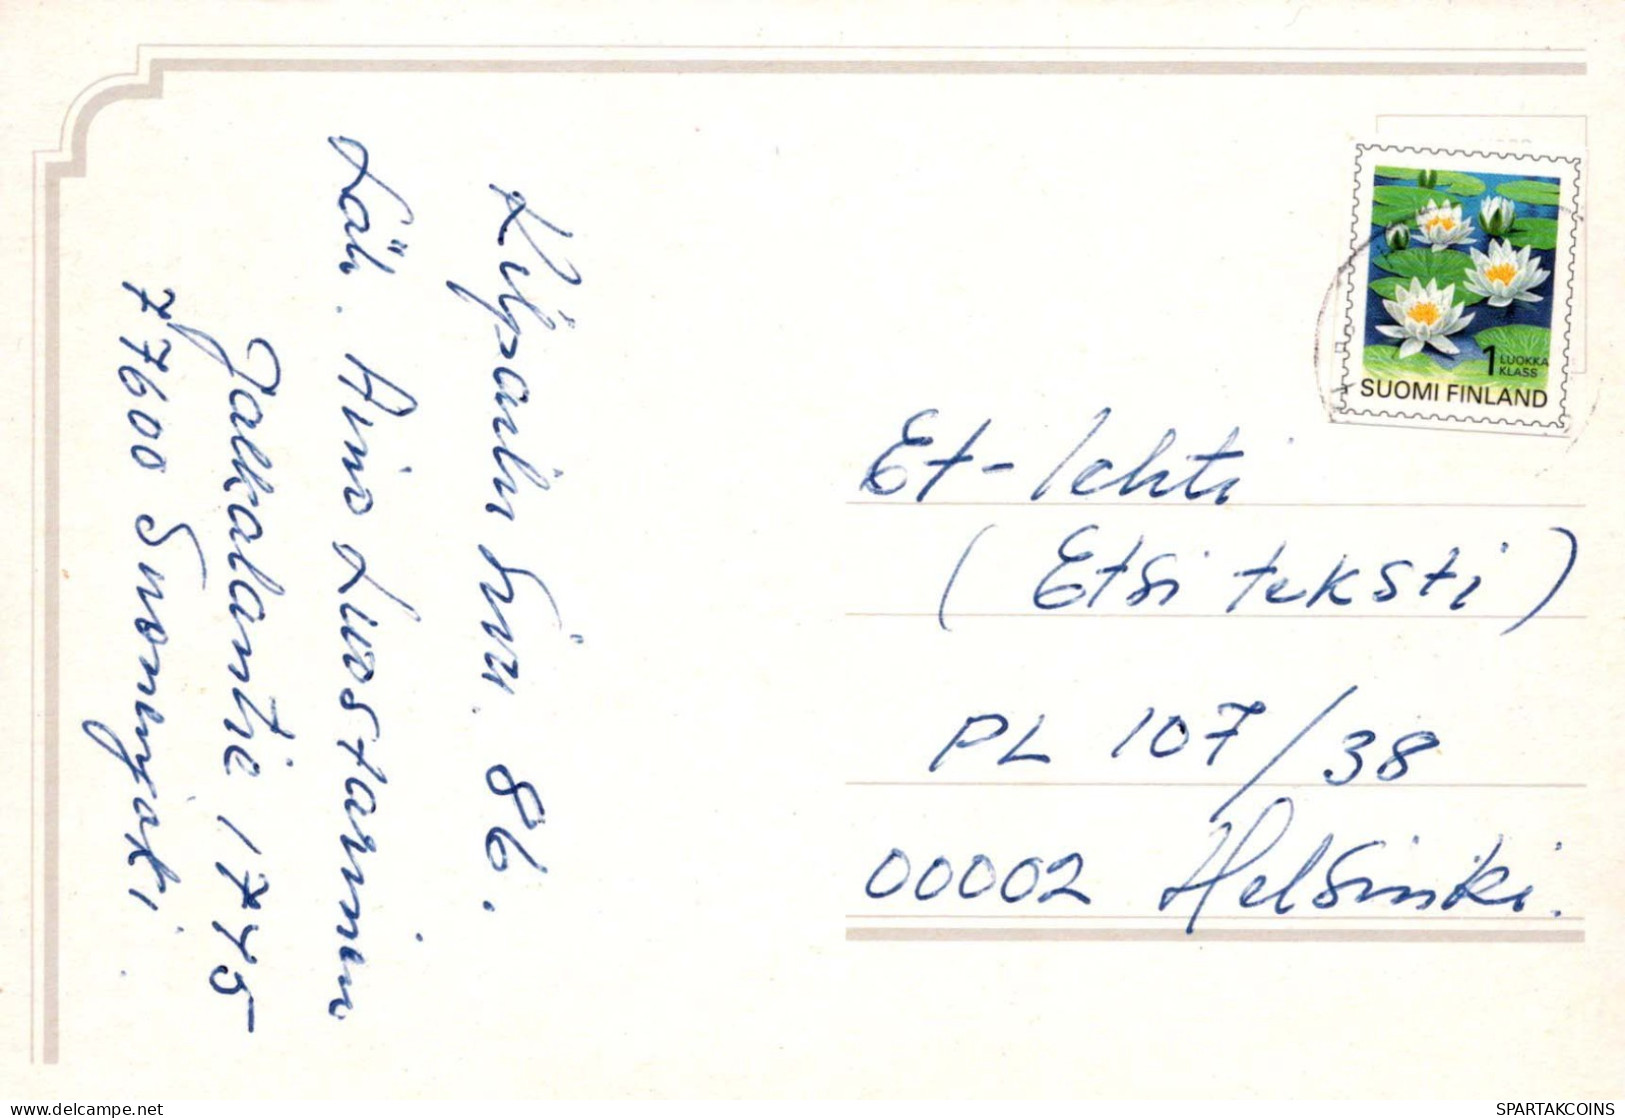 Kilpailu Siv. 86.
Läh. Aino Luostarinen
Jalkalantie 1745
77600 Suonenjoki
1 LUOKKA
KLASS
SUOMI FINLAND
Et-lehti
(Etsi teksti)
PL 107/38
00002 Helsinki.
SPARTAKCOINS